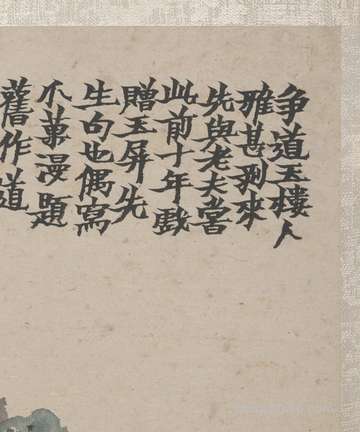 争道玉樓人
雅甚剥來
先與老夫嘗
此前十年戲
贈玉屏先
生句也偶寫
菓漫題
舊作道